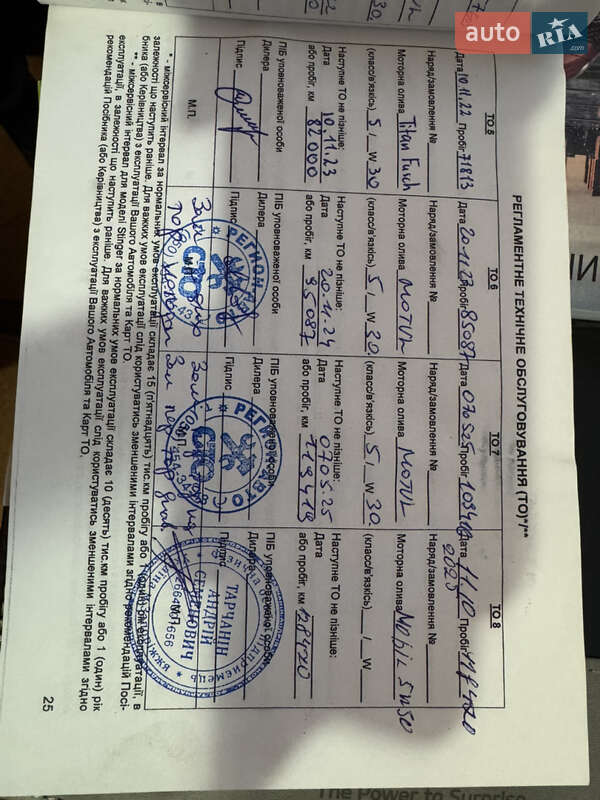 РЕГЛАМЕНТНЕ ТЕХНІЧНЕ ОБСЛУГОВУВАННЯ (ТО)*/**
ТО 5
Дата 10.11.22 Пробіг 71813
Наряд/замовлення №
Моторна олива Titan Fuch
(класс/в'язкість) 5 / W 30
Наступне ТО не пізніше:
Дата 10.11.23
або пробіг, км 82000
ПІБ уповноваженої особи
Дилера
Підпис
М.П.
ТО 6
Дата 20.11.23 Пробіг 85087
Наряд/замовлення №
Моторна олива MOTUL
(класс/в'язкість) 5 / W 30
Наступне ТО не пізніше:
Дата 20.11.24
або пробіг, км 95087
ПІБ уповноваженої особи
Дилера
Підпис
РЕГИОН АВТО
СТО
ТО 7
Дата Пробіг
Наряд/замовлення №
Моторна олива MOTUL
(класс/в'язкість) 5 / W 30
Наступне ТО не пізніше:
Дата 0705.25
або пробіг, км 113419
ПІБ уповноваженої особи
Дилера
Підпис
РЕГИОН АВТО
СТО
ТО 8
Дата 11.10 2025 Пробіг 118420
Наряд/замовлення №
Моторна олива Mobil 5W50
(класс/в'язкість) / W
Наступне ТО не пізніше:
Дата
або пробіг, км 128420
ПІБ уповноваженої особи
Дилера
Підпис
М.П.
ТАРЧАНІН
АНДРІЙ
СЕМЕНОВИЧ
* - міжсервісний інтервал за нормальних умов експлуатації складає 15 (п'ятнадцять) тис.км пробігу або 1 (один) рік експлуатації, в
залежності що наступить раніше. Для важких умов експлуатації слід користуватись зменшеними інтервалами згідно рекомендацій Посі-
бника (або Керівництва) з експлуатації Вашого Автомобіля та Карт ТО.
** - міжсервісний інтервал для моделі Stinger за нормальних умов експлуатації складає 10 (десять) тис.км пробігу або 1 (один) рік
експлуатації, в залежності що наступить раніше. Для важких умов експлуатації слід користуватись зменшеними інтервалами згідно
рекомендацій Посібника (або Керівництва) з експлуатації Вашого Автомобіля та Карт ТО.
25
The Power to Surprise
auto RIA.com